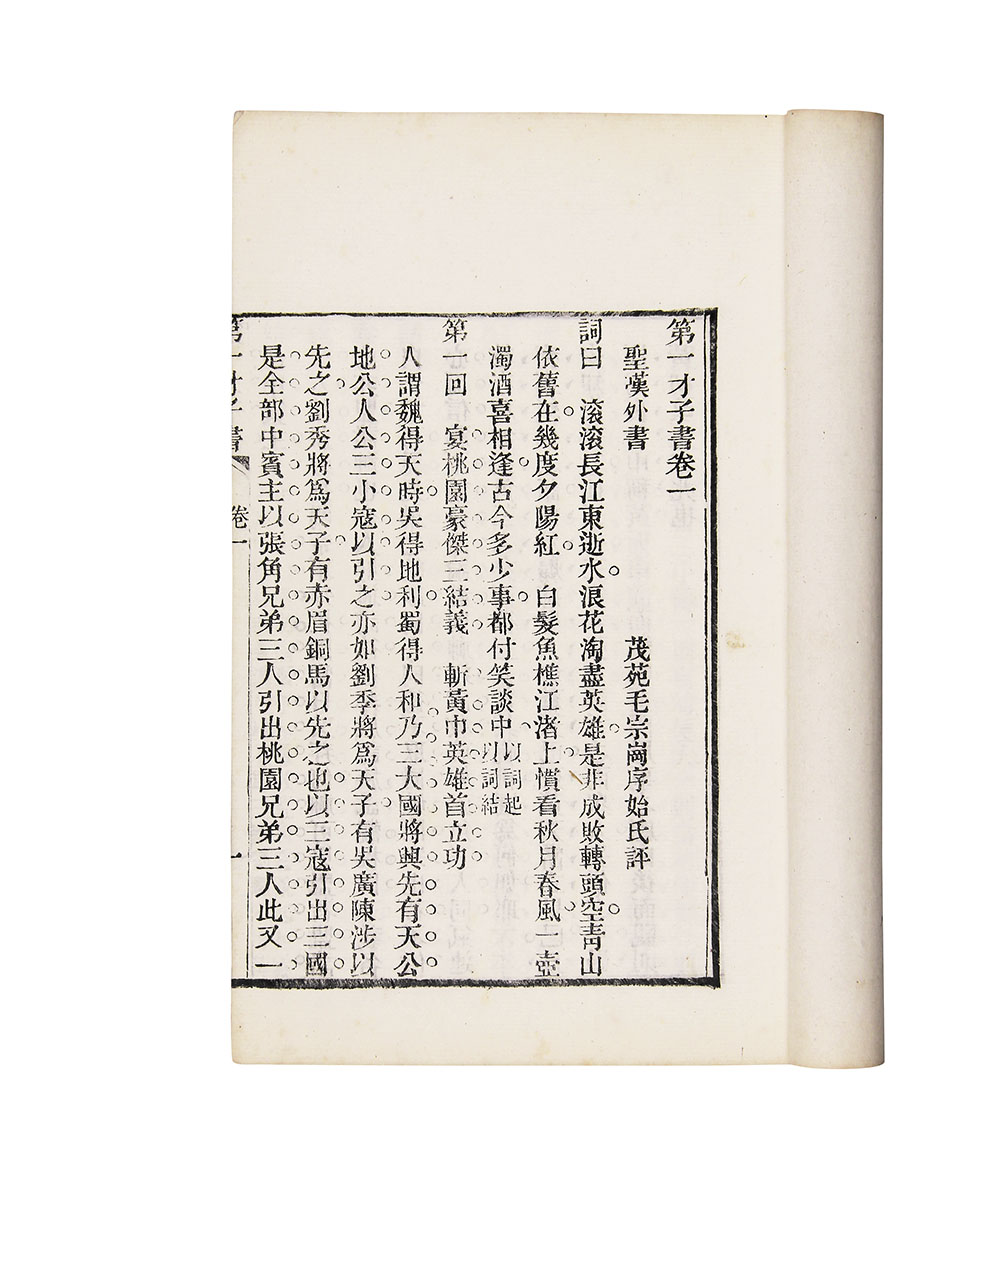 第一才子書卷一
聖嘆外書　茂苑毛宗崗序始氏評
詞曰　滾滾長江東逝水浪花淘盡英雄是非成敗轉頭空青山
依舊在幾度夕陽紅　白髮魚樵江渚上慣看秋月春風一壺
濁酒喜相逢古今多少事都付笑談中
以詞起
以詞結
第一回　宴桃園豪傑三結義　斬黃巾英雄首立功
人謂魏得天時吳得地利蜀得人和乃三大國將興先有天公
地公人公三小寇以引之亦如劉季將爲天子有吳廣陳涉以
先之劉秀將爲天子有赤眉銅馬以先之也以三寇引出三國
是全部中賓主以張角兄弟三人引出桃園兄弟三人此又一
第一才子書　卷一　一